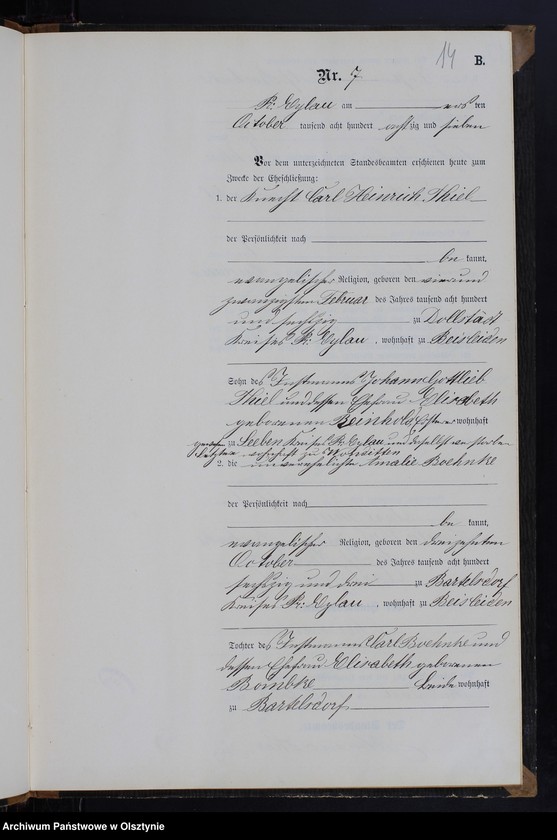 14
B.
Nr. 7
Pr: Eylau am ersten
October tausend acht hundert achtzig und sieben
Vor dem unterzeichneten Standesbeamten erschienen heute zum
Zwecke der Eheschließung:
1. der Knecht Carl Heinrich Thiel
der Persönlichkeit nach
be kannt,
evangelischer Religion, geboren den vierund
zwanzigsten Februar des Jahres tausend acht hundert
und sechzig zu Dollstädt
Kreises Pr: Eylau, wohnhaft zu Beisleiden
Sohn des Instmanns Johann Gottlieb
Thiel und dessen Ehefrau Elisabeth
geborenen Beinhold, wohnhaft
gewesen zu Leeben Kreises Pr. Eylau und daselbst verstorben
letztere wohnhaft zu
2. die unverehelichte Amalie Boehnke
der Persönlichkeit nach
be kannt,
evangelischer Religion, geboren den dreizehnten
October des Jahres tausend acht hundert
sechszig und drei zu Bartelsdorf
Kreises Pr: Eylau, wohnhaft zu Beisleiden
Tochter des Instmanns Carl Boehnke und
dessen Ehefrau Elisabeth geborenen
Bombke beide wohnhaft
zu Bartelsdorf
Archiwum Państwowe w Olsztynie